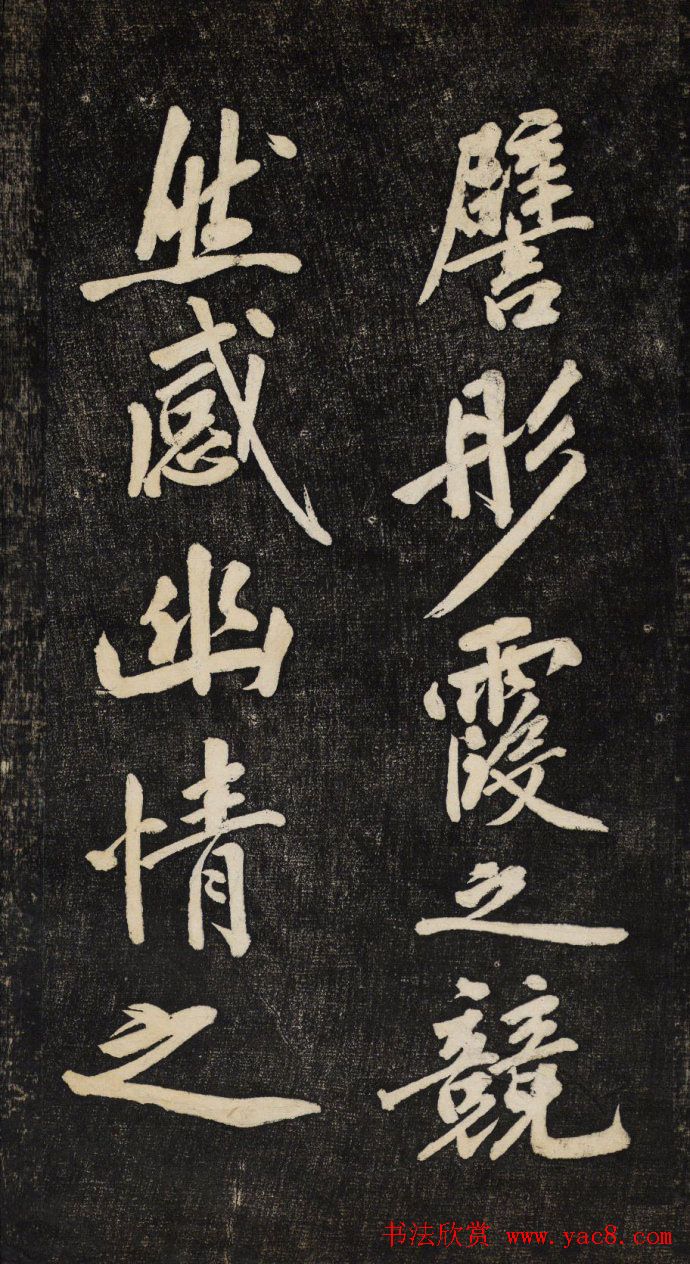 譬彤霞之競
然感幽情之
书法欣赏 www.yac8.com